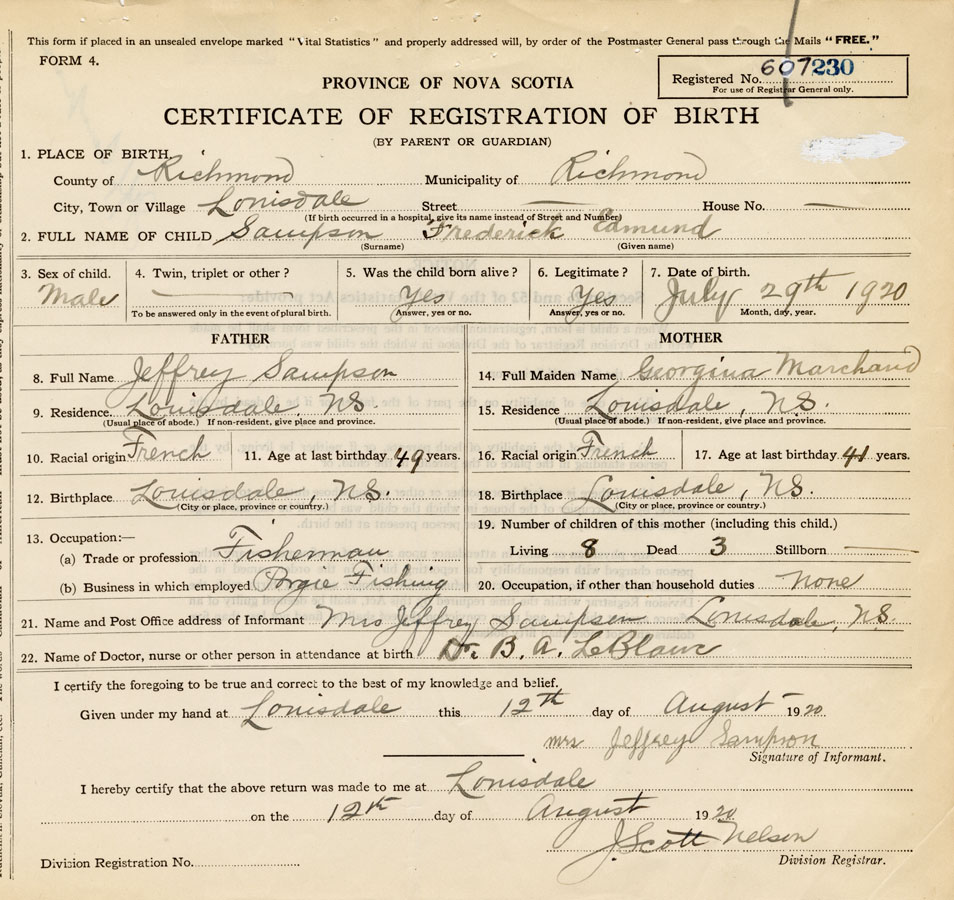 This form if placed in an unsealed envelope marked "Vital Statistics" and properly addressed will, by order of the Postmaster General pass through the Mails "FREE."
FORM 4.
Registered No. 607230
For use of Registrar General only.
PROVINCE OF NOVA SCOTIA
CERTIFICATE OF REGISTRATION OF BIRTH
(BY PARENT OR GUARDIAN)
1. PLACE OF BIRTH.
County of Richmond Municipality of Richmond
City, Town or Village Louisdale Street — House No. —
(If birth occurred in a hospital, give its name instead of Street and Number)
2. FULL NAME OF CHILD Sampson Frederick Edmund
(Surname) (Given name)
3. Sex of child. 4. Twin, triplet or other? 5. Was the child born alive? 6. Legitimate? 7. Date of birth.
Male — Yes Yes July 29th 1920
To be answered only in the event of plural birth. Answer, yes or no. Answer, yes or no. Month, day, year.
FATHER MOTHER
8. Full Name Jeffrey Sampson 14. Full Maiden Name Georgina Marchand
9. Residence. Louisdale, NS. 15. Residence Louisdale, NS.
(Usual place of abode.) If non-resident, give place and province. (Usual place of abode.) If non-resident, give place and province.
10. Racial origin French 11. Age at last birthday 49 years. 16. Racial origin French 17. Age at last birthday 41 years.
12. Birthplace Louisdale, NS. 18. Birthplace Louisdale, NS.
(City or place, province or country.) (City or place, province or country.)
13. Occupation:— 19. Number of children of this mother (including this child.)
(a) Trade or profession Fisherman Living 8 Dead 3 Stillborn —
(b) Business in which employed Porgie Fishing 20. Occupation, if other than household duties None
21. Name and Post Office address of Informant Mrs Jeffrey Sampson Louisdale, NS.
22. Name of Doctor, nurse or other person in attendance at birth Dr. B. A. LeBlanc
I certify the foregoing to be true and correct to the best of my knowledge and belief.
Given under my hand at Louisdale this 12th day of August 1920
mrs Jeffrey Sampson
Signature of Informant.
I hereby certify that the above return was made to me at Louisdale
on the 12th day of August 1920
J. Scott Nelson
Division Registration No. Division Registrar.